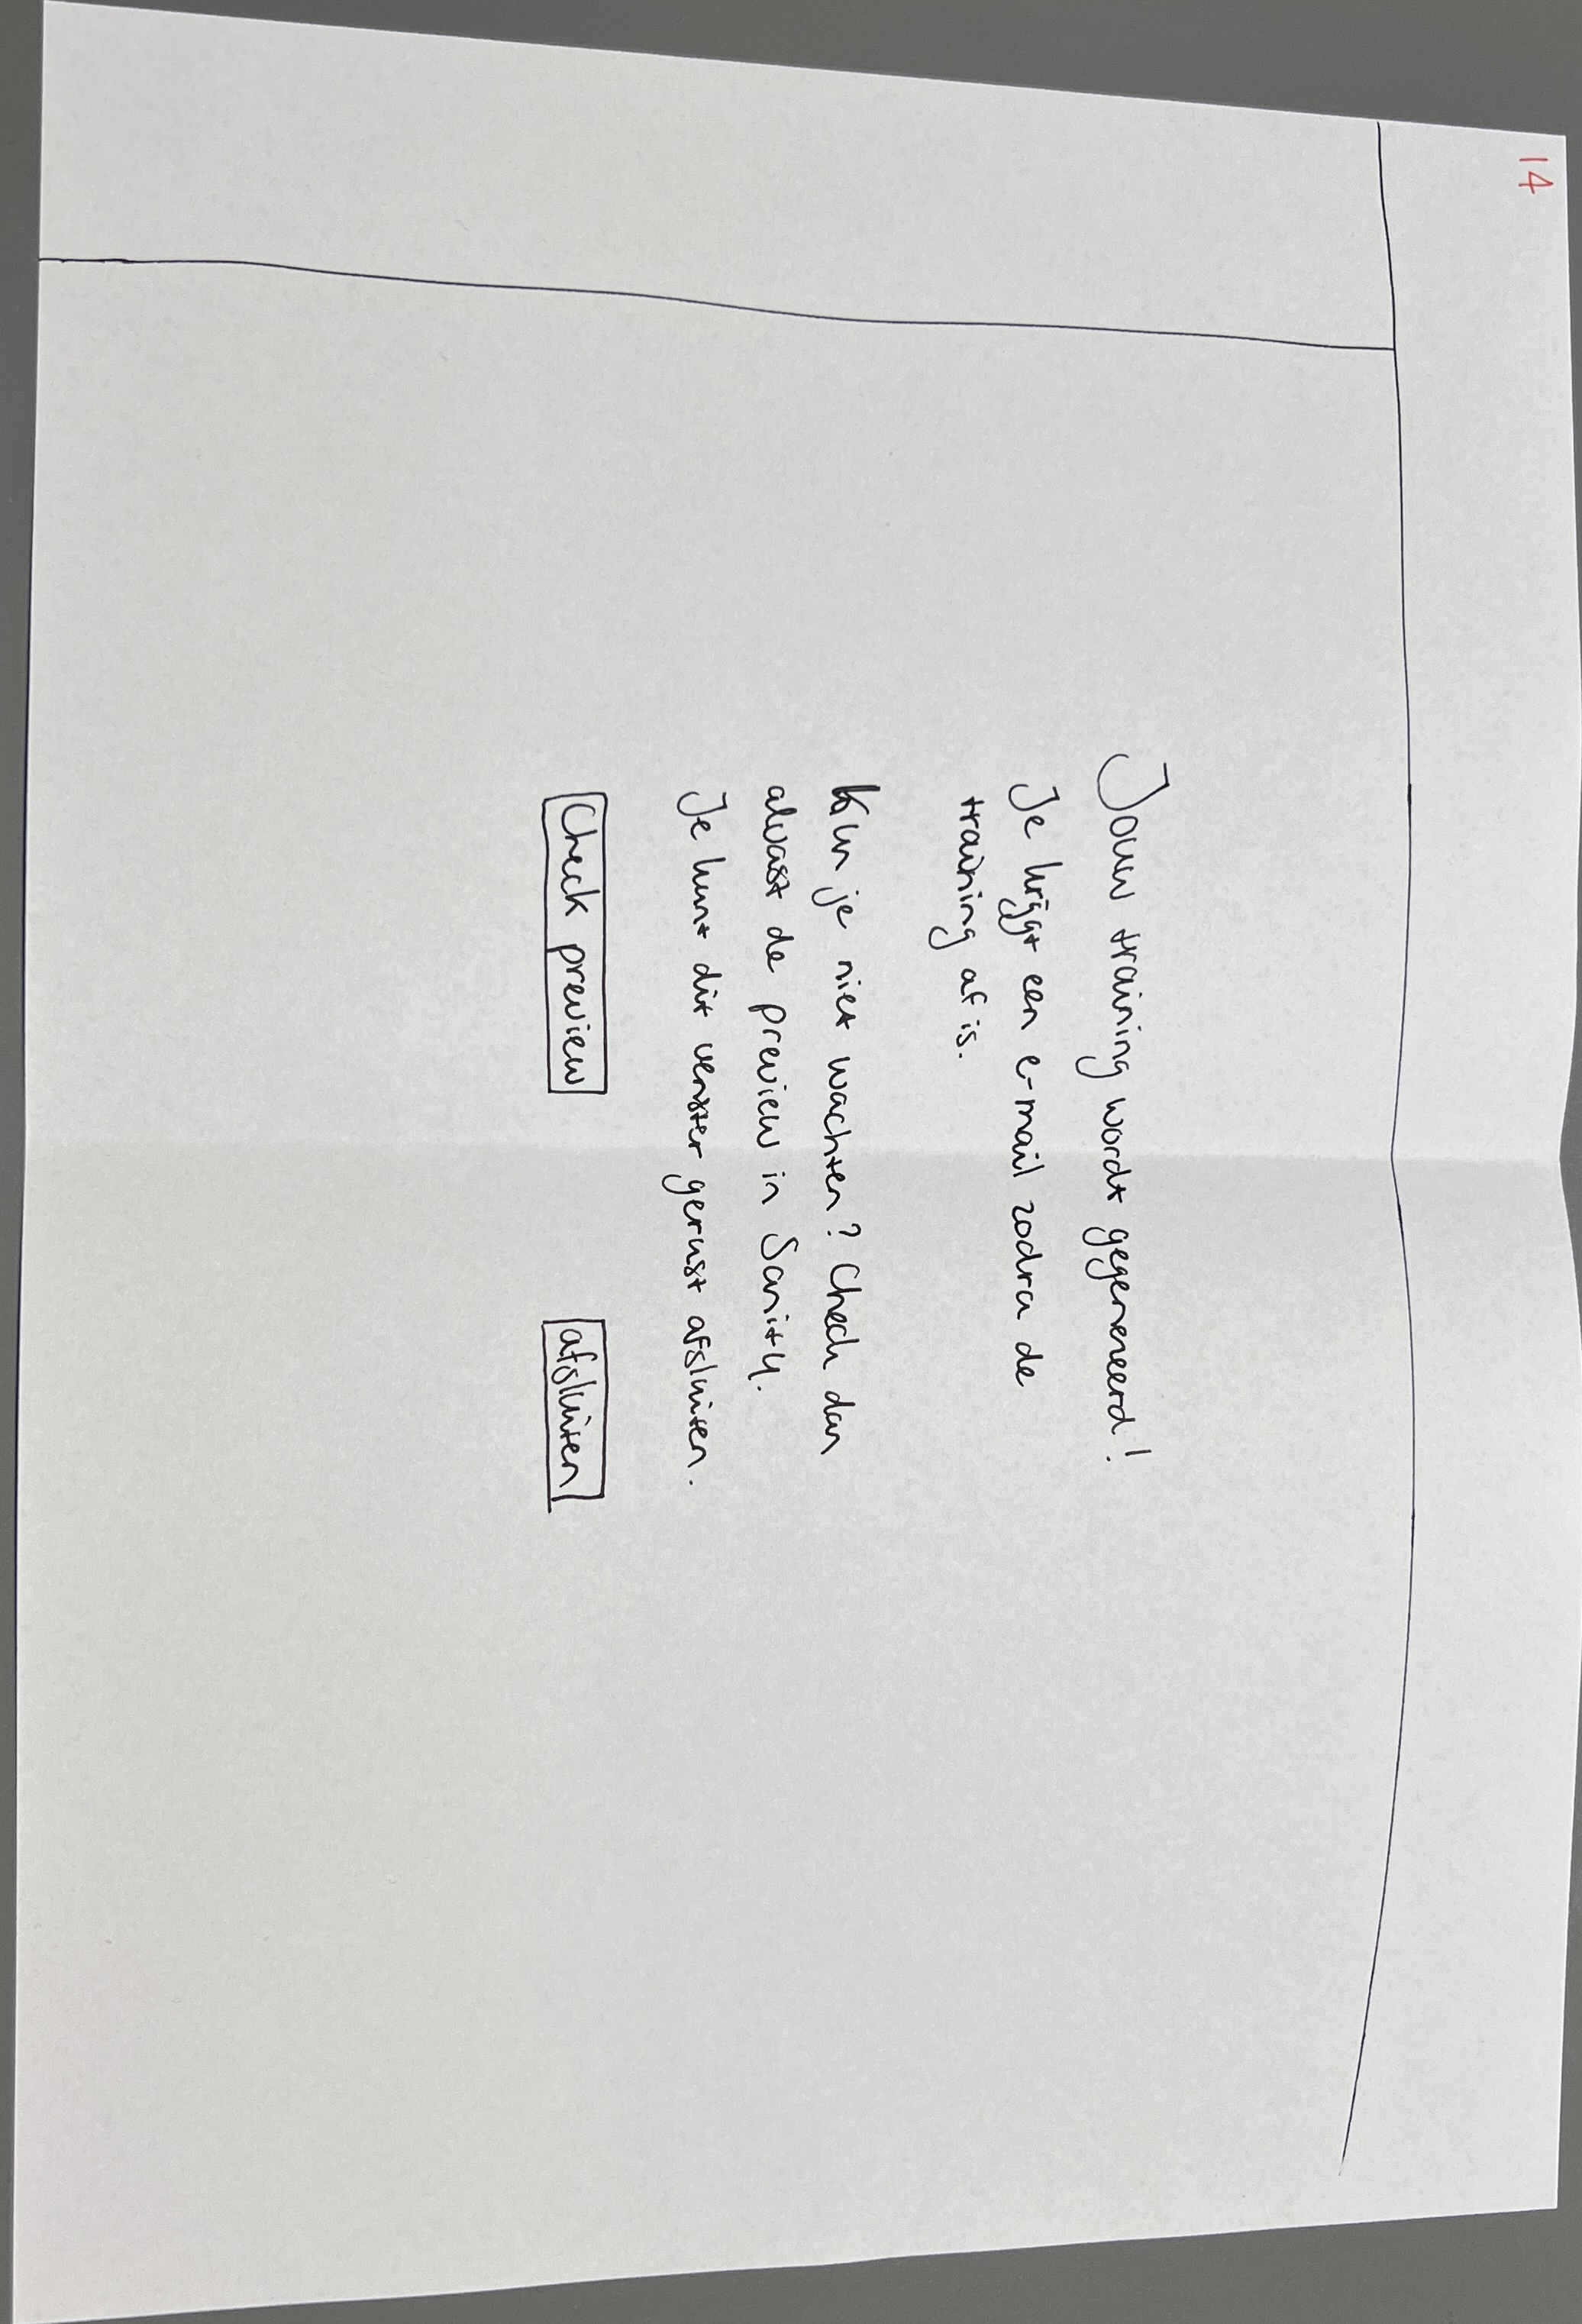 14
Jouw training wordt gegenereerd!
Je krijgt een e-mail zodra de
training af is.
Kun je niet wachten? Check dan
alvast de preview in Sanity.
Je kunt dit venster gerust afsluiten.
Check preview
afsluiten